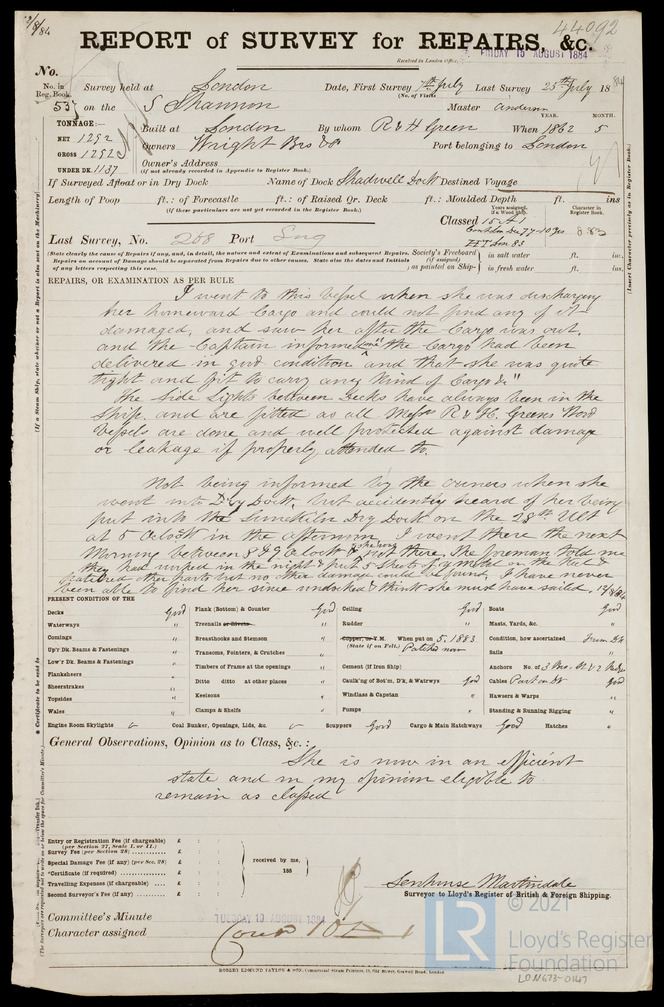 44092
REPORT of SURVEY for REPAIRS, &c.
Received in London Office, FRIDAY 15 AUGUST 1884
No.
No. in Reg. Book. Survey held at London Date, First Survey 7th July Last Survey 25th July 18
(No. of Visits)
53 on the S Shannon Master
TONNAGE:— YEAR. MONTH.
NET 1292 Built at London By whom R & H Green When 1862 5
GROSS 1292 Owners Wright Bros & Co Port belonging to London
UNDER DK. 1137 Owner's Address
(If not already recorded in Appendix to Register Book.)
If Surveyed Afloat or in Dry Dock Name of Dock Shadwell Dock Destined Voyage
Length of Poop ft.: of Forecastle ft.: of Raised Qr. Deck ft.: Moulded Depth ft. ins
(If these particulars are not yet recorded in the Register Book.)
Years assigned, if a Wood Ship. Character in Register Book.
Classed 15 A1
Cont Lon Dec 77-10 yrs 8.83
Lon 83
Last Survey, No. 258 Port
(State clearly the cause of Repairs if any, and, in detail, the nature and extent of Examinations and subsequent Repairs.
Repairs on account of Damage should be separated from Repairs due to other causes. State also the dates and Initials
of any letters respecting this case.
Society's Freeboard (if assigned) as painted on Ship- in salt water ft. ins.
in fresh water ft. ins.
REPAIRS, OR EXAMINATION AS PER RULE
I went to this Vessel when she was discharging
her homeward Cargo and could not find any of it
damaged, and saw her after the Cargo was out.
and the Captain informed me "the Cargo had been
delivered in good condition and that she was quite
tight and fit to carry any kind of Cargo &c"
The Side Lights between Decks have always been in the
Ship. and are fitted as all Messrs R & H. Greens Wood
Vessels are done and well protected against damage
or leakage if properly attended to.
Not being informed by the owners when she
went into Dry Dock, but accidently heard of her being
put into the Limekiln Dry Dock on the 28th Ult
at 5 Oclock in the afternoon I went there the next
Morning between 8 & 9 Oclock & she was not there. The foreman told me
they had worked in the night & put 5 Sheets of Y Metal on the Keel &
other parts but no other damage could be found, I have never
been able to find her since undocked & think she must have sailed,
PRESENT CONDITION OF THE
Decks Good Plank (Bottom) & Counter Good Ceiling Good Boats Good
Waterways " Treenails or Rivets " Rudder " Masts, Yards, &c. "
Comings " Breasthooks and Stemson " Copper, or Y.M. When put on 5.1883 Condition, how ascertained From Dk
(State if on Felt.) Patched now
Up'r Dk. Beams & Fastenings " Transoms, Pointers, & Crutches " Sails "
Low'r Dk. Beams & Fastenings " Timbers of Frame at the openings " Cement (if Iron Ship) Anchors No. of 3
Planksheers " Ditto ditto at other places " Caulk'ng of Bot'm, D'k, & Watrwys good Cables Part on Dk Good
Sheerstrakes " Keelsons " Windlass & Capstan " Hawsers & Warps "
Topsides " Clamps & Shelfs " Pumps " Standing & Running Rigging "
Wales "
Engine Room Skylights Coal Bunker, Openings, Lids, &c. Scuppers Good Cargo & Main Hatchways Good Hatches "
General Observations, Opinion as to Class, &c.:
She is now in an efficient
state and in my opinion eligible to
remain as classed
Entry or Registration Fee (if chargeable) £ : :
(per Section 27, Scale I. or II.)
Survey Fee (per Section 28) £ : :
Special Damage Fee (if any) (per Sec. 28) £ : :
*Certificate (if required) £ : :
Travelling Expenses (if chargeable) £ : :
Second Surveyor's Fee (if any) £ : :
received by me,
188
Senhouse Martindale
Surveyor to Lloyd's Register of British & Foreign Shipping.
Committee's Minute TUESDAY 19 AUGUST 1884
Character assigned
ROBERT EDMUND TAYLOR & SON, Commercial Steam Printers, 19, Old Street, Goswell Road, London
© 2021
LR
Lloyd's Register
Foundation
LON673-0147